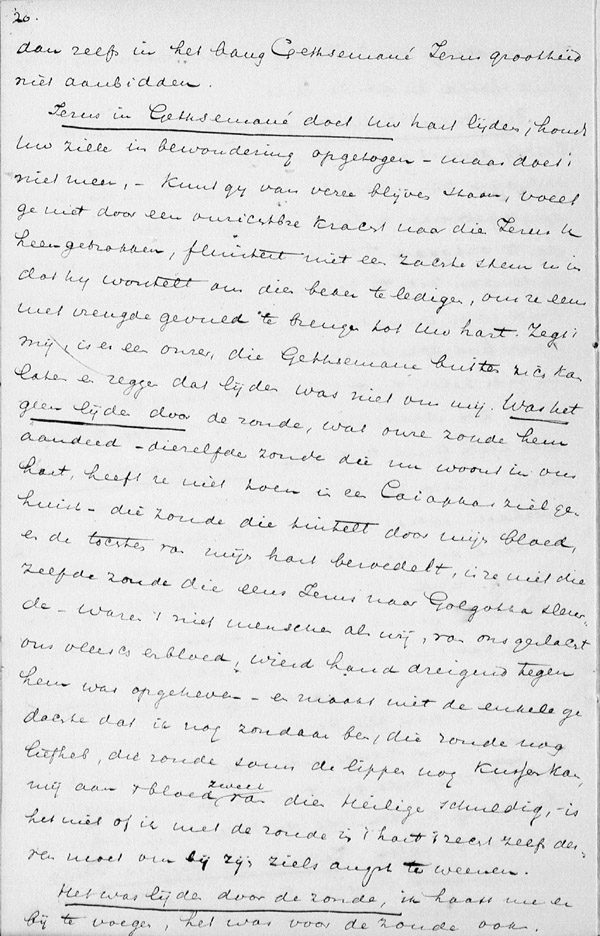 20.
dan zelfs in het bang Gethsemané Jezus grootheid
niet aanbidden.
Jezus in Gethsemané doet Uw hart lijden, houdt
Uw ziele in bewondering opgetogen – maar doet 't
niet meer, – Kunt gy van verre blijven staan, voelt
ge niet door een onzichtbre kracht naar die Jezus U
heengetrokken, fluistert niet een zachte stem u in
dat hy worstelt om dien beker te ledigen, om ze eens
met vreugde gevuld te brengen tot Uw hart. Zegt 't
mij, is er een onzer, die Gethsemané buiten zich kan
laten en zeggen dat lijden was niet om mij. Was het
geen lijden door de zonde, wat onze zonde hem
aandeed – diezelfde zonde die nu woont in ons
hart, heeft ze niet toen in een Caiaphas ziel ge
huisd – die zonde die tintelt door mijn bloed,
en de tochten van mijn hart bezoedelt, is ze niet die
zelfde zonde die eens Jezus naar Golgotha sleur-
de – waren 't niet menschen als wij, van ons geslacht
ons vleesch en bloed, wierd hand dreigend tegen
hem was opgeheven – en maakt niet de enkele ge
dachte dat ik nog zondaar ben, die zonde nog
liefheb, die zonde soms de lippen nog kussen kan,
mij aan 't bloed zweet van dien Heilige schuldig, – is
het niet of ik met de zonde in 't hart 't recht zelf der-
ven moet om bij zijn ziels angst te weenen.
Het was lijden door de zonde, ik haast me er
bij te voegen, het was voor de zonde ook.